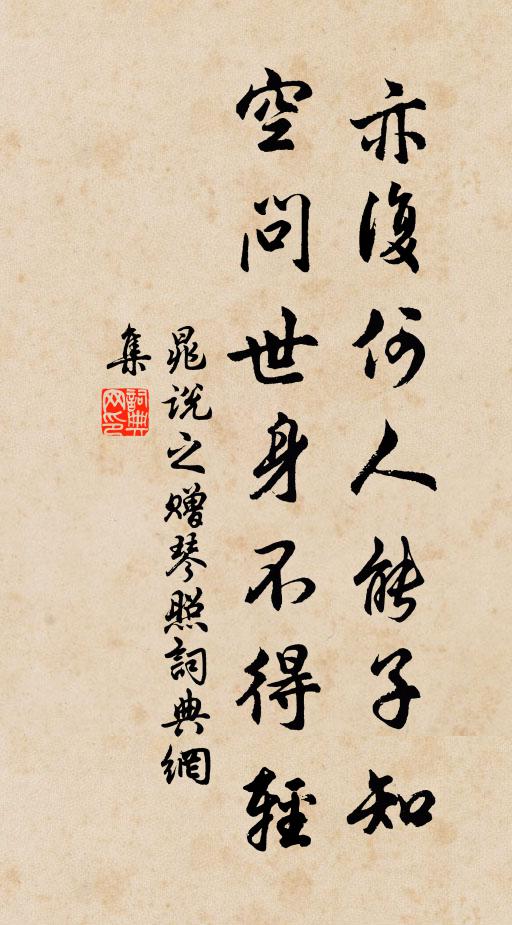 亦復何人能子知
空問世身不得輕
晁說之贈琴照詞典網
集
詞典
网印